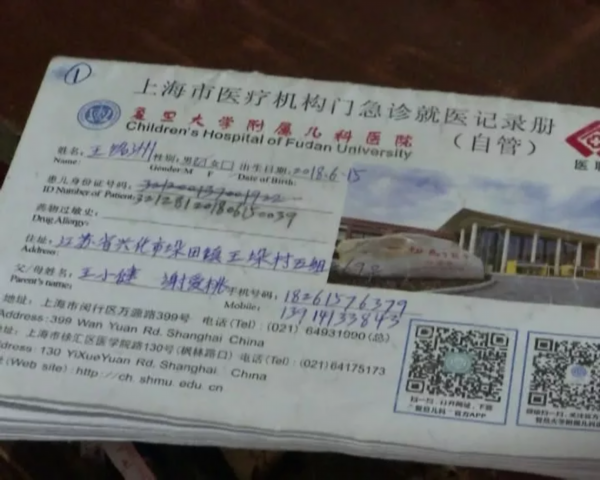 ①
上海市医疗机构门急诊就医记录册
复旦大学附属儿科医院
(自管)
Children's Hospital of Fudan University
医联
姓名: 王 洲 性别: 男 女 出生日期: 2018.6.15
Name: Gender: M F Date of Birth:
患儿身份证号码:
ID Number of Patient: 321281201806150039
药物过敏史:
Drug Allergy:
住址: 江苏省兴化市垛田镇王垛村五组
Address:
父/母姓名: 王小健 谢爱桃 手机号码: 18261576379
Parent's name: Mobile: 13914133843
地址: 上海市闵行区万源路399号 电话(Tel): (021) 64931090 (总)
Address: 399 Wan Yuan Rd. Shanghai China
址: 上海市徐汇区医学院路130号 (枫林路口) 电话(Tel): (021)64175173
dress: 130 YiXueYuan Rd. Shanghai, China
(Web site): http://ch.shmu.edu.cn
扫一扫
扫一扫